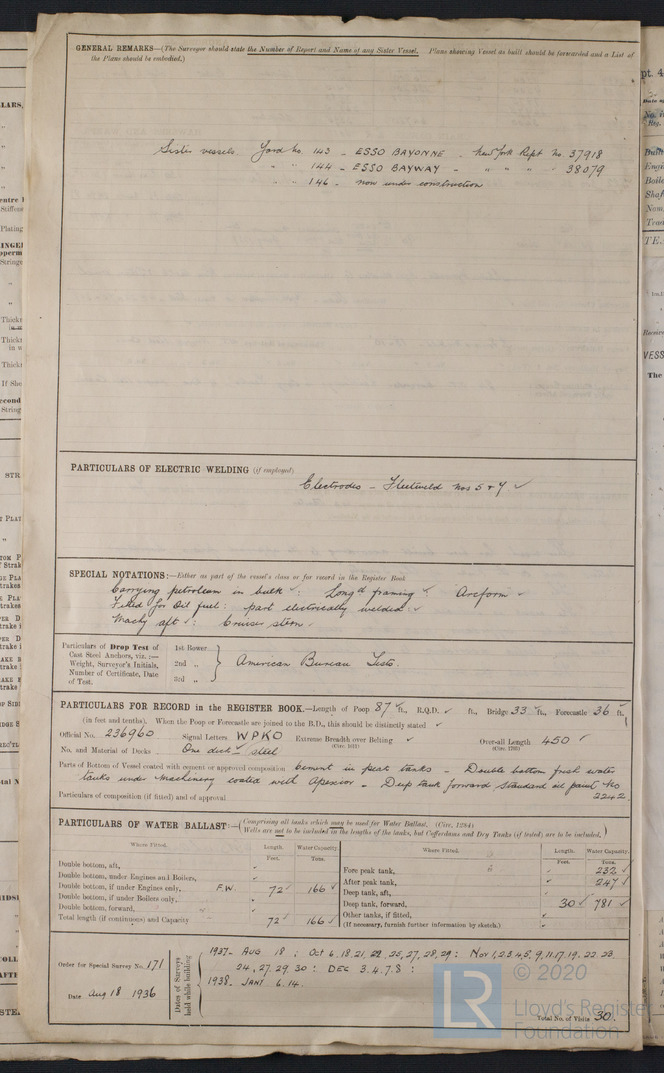 GENERAL REMARKS—(The Surveyor should state the Number of Report and Name of any Sister Vessel. Plans showing Vessel as built should be forwarded and a List of
the Plans should be embodied.)
Sister vessels. Yard No. 143 - ESSO BAYONNE - New York Rept No. 37918
" " 144 - ESSO BAYWAY - " " " " 38079
" " 146 - now under construction
PARTICULARS OF ELECTRIC WELDING (if employed)
Electrodes - Fleetweld Nos 5 & 7 ✓
SPECIAL NOTATIONS:—Either as part of the vessel's class or for record in the Register Book
Carrying petroleum in bulk ✓: Longtl framing ✓ Arcform ✓
Fitted for Oil fuel: part electrically welded: ✓
Machy aft ✓: Cruiser stern ✓
Particulars of Drop Test of
Cast Steel Anchors, viz.:—
Weight, Surveyor's Initials,
Number of Certificate, Date
of Test.
1st Bower
2nd "
3rd "
American Bureau Tests.
PARTICULARS FOR RECORD in the REGISTER BOOK.—Length of Poop 87 ✓ ft., R.Q.D. ✓ ft., Bridge 33 ✓ ft., Forecastle 36 ft.
(in feet and tenths). When the Poop or Forecastle are joined to the B.D., this should be distinctly stated ✓
Official No. 236960 Signal Letters WPKO Extreme Breadth over Belting ✓ Over-all Length 450 ✓
No. and Material of Decks One deck - steel
Parts of Bottom of Vessel coated with cement or approved composition Cement in peak tanks - Double bottom fresh water
tanks under Machinery coated with Apexior - Deep tank forward standard oil paint No
Particulars of composition (if fitted) and of approval 2242
PARTICULARS OF WATER BALLAST:—(Comprising all tanks which may be used for Water Ballast. (Circ. 1284)
Wells are not to be included in the lengths of the tanks, but Cofferdams and Dry Tanks (if tested) are to be included.)
Where Fitted. Length. Water Capacity. Where Fitted. Length. Water Capacity.
Feet. Tons. Feet. Tons.
Double bottom, aft, ✓
Double bottom, under Engines and Boilers, ✓
Double bottom, if under Engines only, F.W. 72 ✓ 166 ✓
Double bottom, if under Boilers only, ✓
Double bottom, forward, ✓
Total length (if continuous) and Capacity 72 ✓ 166 ✓
Fore peak tank, ✓ 232 ✓
After peak tank, ✓ 247 ✓
Deep tank, aft, ✓
Deep tank, forward, 30 ✓ 781 ✓
Other tanks, if fitted, ✓
(If necessary, furnish further information by sketch.) ✓
Order for Special Survey No. 171
Date Aug 18 1936
Dates of Surveys
held while building
1937- AUG 18; Oct 6.18.21, 22, 25, 27, 28, 29: Nov 1,2.3.4.5. 9, 11.17.19. 22. 23.
24, 27. 29. 30: DEC 3. 4. 7. 8:
1938- JANY 6. 14.
Total No. of Visits 30.
LR
© 2020
Lloyd's Register
Foundation